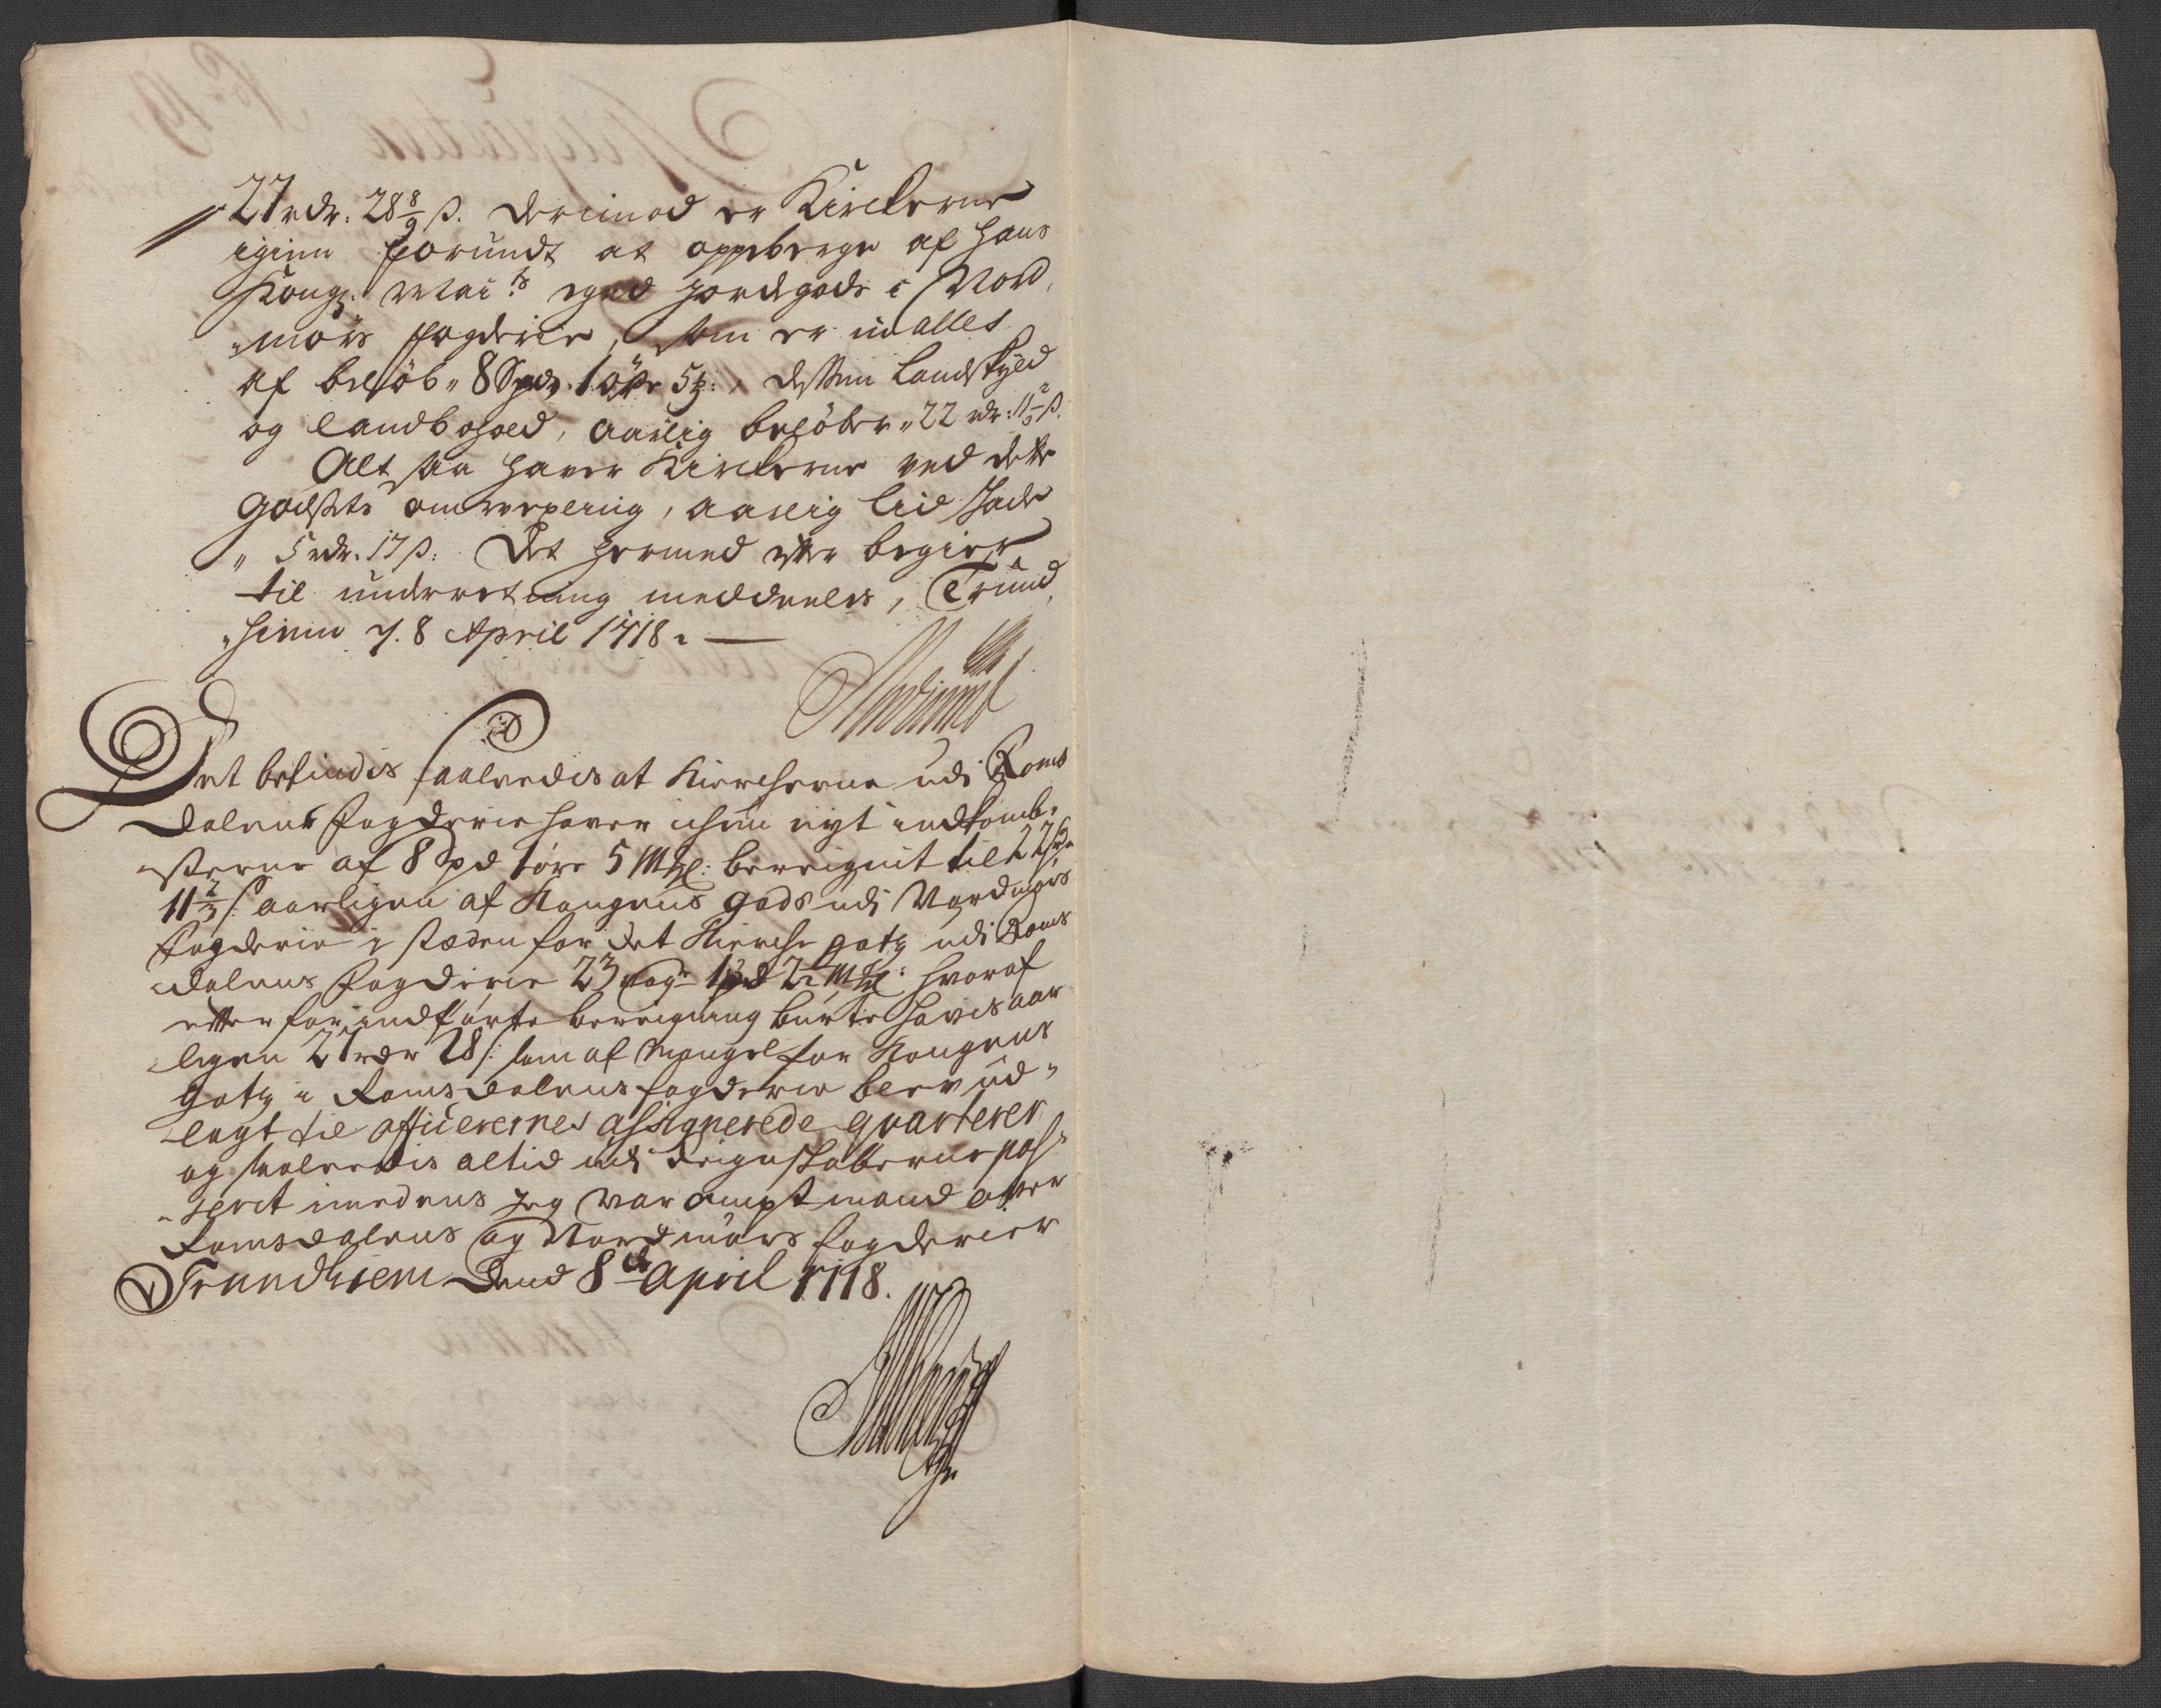 27 rdr. 28 8/9 ß. derimod er Kirckerne
igien forundt at oppeberge af Hans
Kongl: Mai:ts eged Jordegods i Nord,
„mørs fogderie, som er in alles
af beløb „ 8 Spd. 1 øre 5 , dessen Landskyld
og landbohold, aarlig beløber „ 22 rdr: 11 2/3 ß.
Alt saa haver Kirckerne ved dette
godsets omvexling, aarlig liid skade
„ 5 rdr. 17 ß. Det hermed efter begiær
til underretning meddeeles, Trund,
„hiem d. 8 April 1718. —
Det befindis saaledis at Kiercherne udi Roms
dalens fogderie haver ichun nyt indkomb-
sterne af 8 Spd 1 øre 5 Mkl: bereignit til 22 rdr
11 2/3 ß: aarligen af Kongens gods udi Nordmørs
fogderie i stæden for det Kierche gotz udi Roms
dalens fogderie 23 1 pd 2 1/2 Mkl: hvoraf
efter for indførte bereigning burte havis aar
ligen 27 rdr 28 ß: som af Mangel for Kongens
gotz i Romsdalens fogderie blev ud-
lagt til officerernes assignerede qvarterer
og saaledis altid udi Reignskaberne pas-
serit imedens jeg var amptmand over
Romsdalens og Nordmørs fogderier
Trundhiem Dend 8de April 1718.